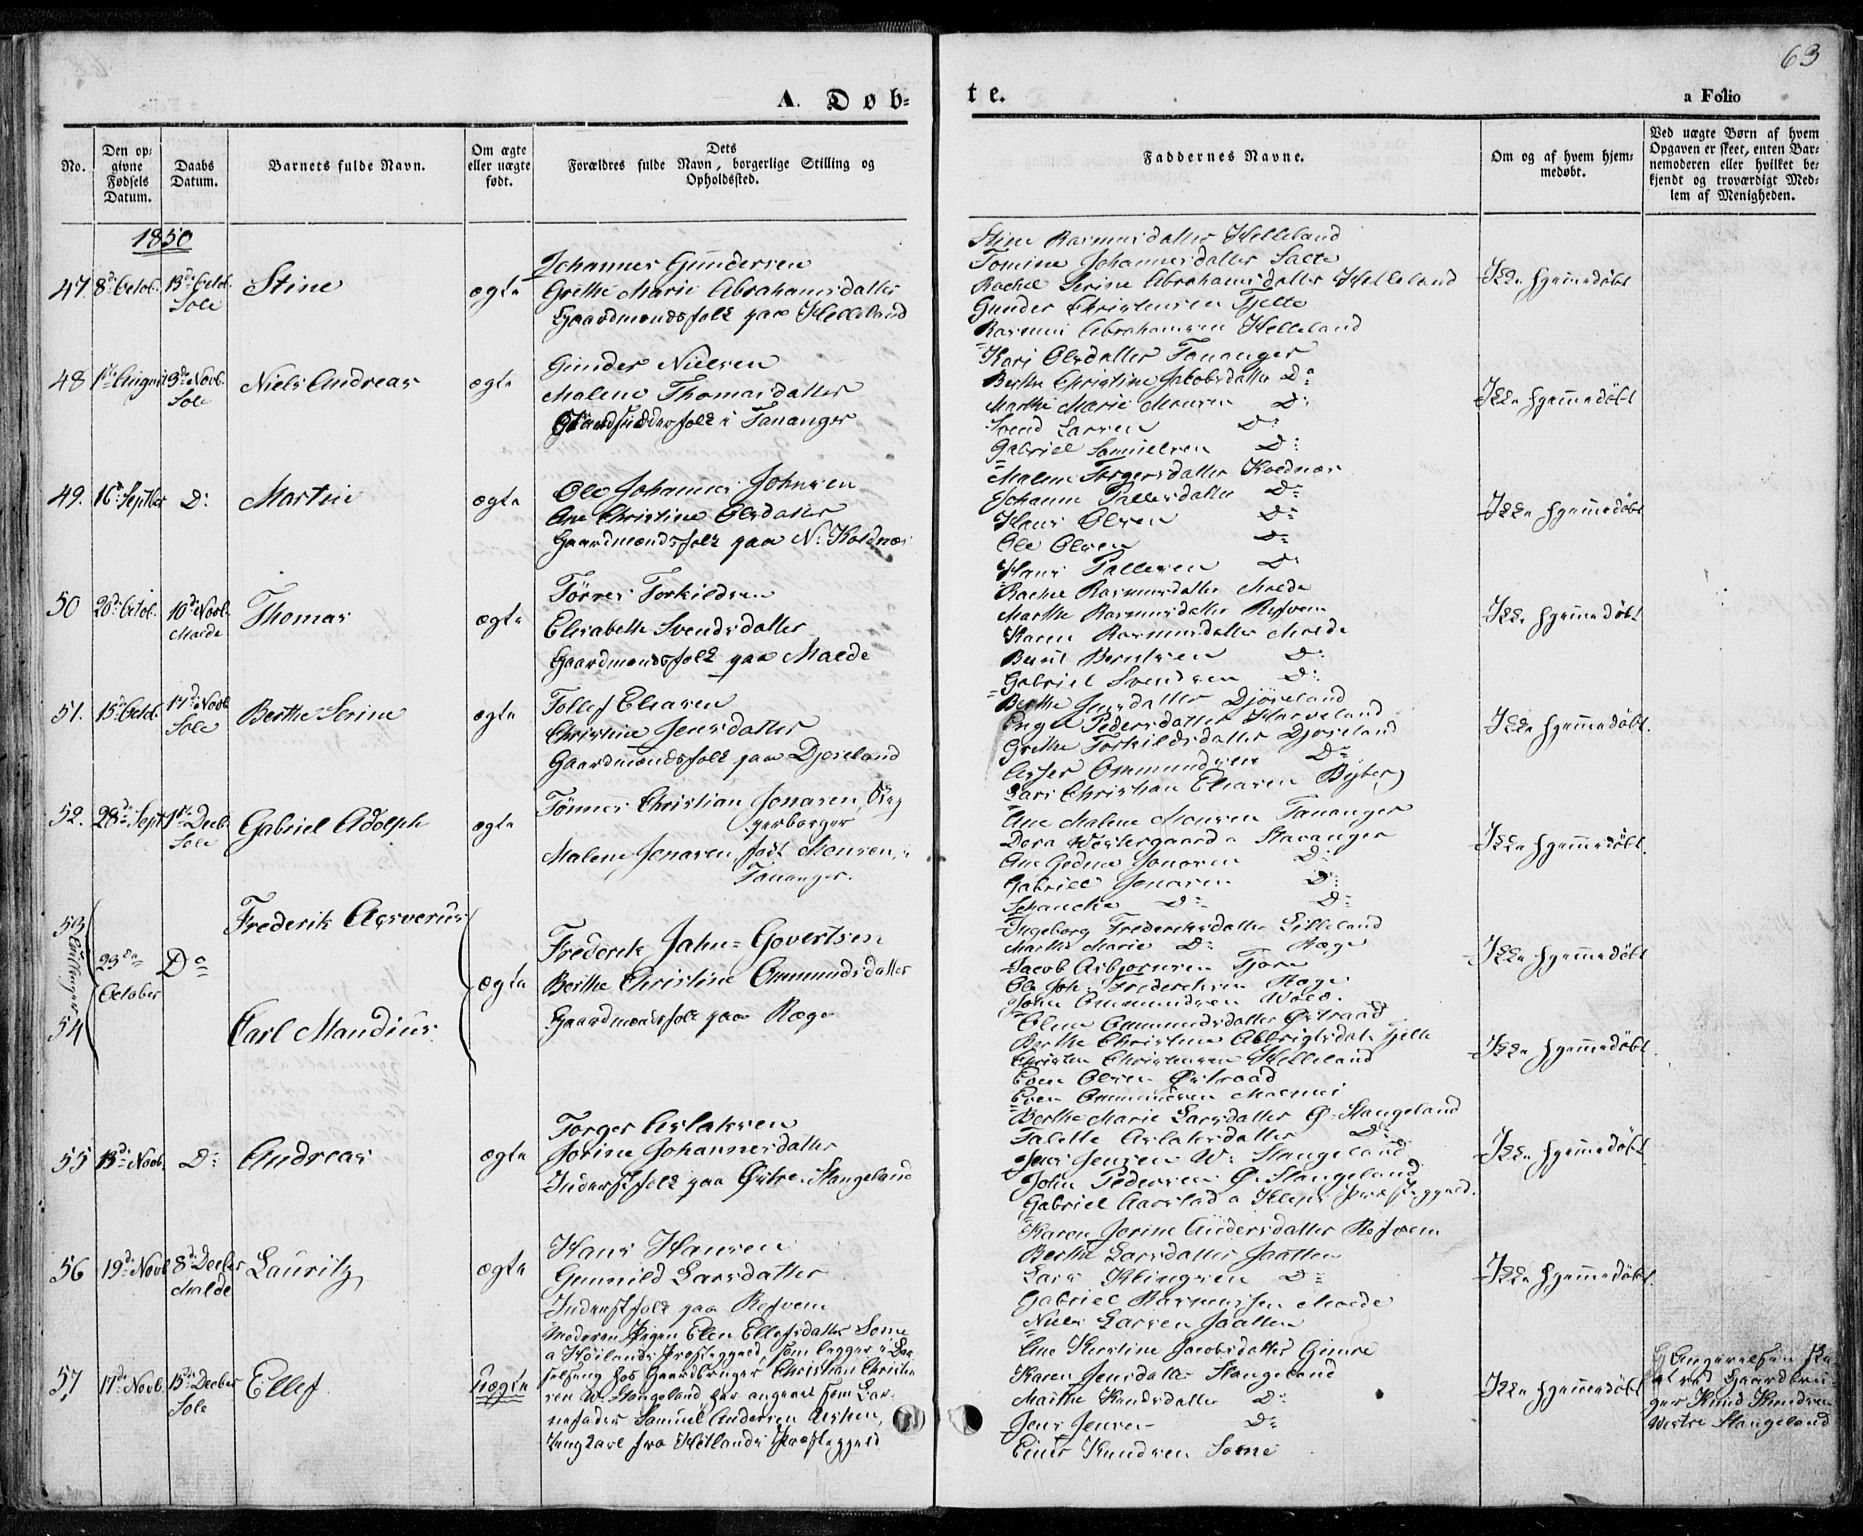 63
A. Døb-
te.
a Folio
No.
Den op-
givne
Fødsels
Datum.
Daabs
Datum.
Barnets fulde Navn.
Om ægte
eller uægte
født.
Dets
Forældres fulde Navn, borgerlige Stilling og
Opholdssted.
Faddernes Navne.
Om og af hvem hjem-
medøbt.
Ved uægte Børn af hvem
Opgaven er skeet, enten Bar-
nemoderen eller hvilket be-
kjendt og troværdigt Med-
lem af Menigheden.
1850
47. 8de Octob. 13de Octob.
Sole
Stine
ægte
Johannes Gundersen
Grethe Marie Abrahamsdatter
Gaardmandsfolk paa Helleland
Stine Rasmusdatter Helleland
Tomine Johannesdatter Salte
Rachel Serine Abrahamsdatter Helleland
Gunder Christensen Tjelle
Rasmus Abrahamsen Helleland
Ikke hjemmedøbt
48 1ste August 3de Novb.
Sole
Niels Andreas
ægte
Gunder Nielsen
Malene Thomasdatter
Strandsidderfolk i Tananger
Kari Olsdatter Tananger
Berthe Christine Jakobsdatter Do
Marthe Marie Monsen D:
Svend Larsen D:
Gabriel Samuelsen D:
Ikke hjemmedøbt
49. 16de Septber D:
Martin
ægte
Ole Johannes Johnsen
Ane Christine Olsdatter
Gaardmandsfolk paa N. Koldnæs
Malene Torgersdatter Kolnæs
Johanne Pallesdatter D:
Hans Olsen D:
Ole Olsen D:
Hans Pallesen D:
Ikke hjemmedøbt
50 20de Octob. 10de Novb.
Malde
Thomas
ægte
Tørres Torkildsen
Elisabeth Svendsdatter
Gaardmandsfolk paa Malde
Rachel Rasmusdatter Malde
Marthe Rasmusdatter Refsem
Karen Rasmusdatter Malde
Berntsen D:
Gabriel Svendsen D:
Ikke hjemmedøbt
51. 15de Octob. 17de Novb.
Sole
Berthe Serine
ægte
Tollef Eliasen
Christine Jensdatter
Gaardmandsfolk paa Djøseland
Berthe Jensdatter Djøseland
Pedersdatter Harveland
Grethe Torkildsdatter Djøseland
Asser Ommundsen D:
Lars Christian Eliasen Byberg
Ikke hjemmedøbt.
52. 28de Sept. 1ste Decb.
Sole
Gabriel Adolph
ægte
Tønnes Christian Jonasen, Stav
gerborger
Malene Jonasen, født Monsen,
Tananger.
Ane Malene Monsen Tananger
Dora Westergaard a Stavanger
Jonasen D:
Gabriel Jonasen D:
D: D:
Ikke hjemmedøbt.
53
Tvillinger
54
23de
October
Do
Frederik Asverus
Carl Mandius
ægte
Frederik Jahn-Govertsen
Berthe Christine Ommundsdatter
Gaardmandsfolk paa Ræge
Ingeborg Frederiksdatter Lilleland
Marthe Marie D: Ræge
Jacob Asbjørnsen Tjora
Ole Joh. Frederiksen Ræge
John Ommundsen Wold.
Ikke hjemmedøbt
Oline Ommundsdatter Østraad
Berthe Christine Albrigtsdat. Tjelle
Christen Christensen Helleland
Even Olsen Østraad
Even Ommundsen
Ikke hjemmedøbt.
55 13de Novb. D:
Andreas
ægte
Torger Aslaksen
Jorine Johannesdatter
Inderstfolk paa Østre-Stangeland
Berthe Marie Larsdatter Ø. Stangeland
Talette Aslaksdatter D:
Jens Jensen W. Stangeland
John Pedersen Ø. Stangeland
Gabriel Aarstad a Klepps Præstegjeld.
Ikke hjemmedøbt.
56 19de Novb 8de Decber
Malde
Lauritz
ægte
Hans Hansen
Gunnild Larsdatter
Inderstfolk paa Refsem
Karen Jorine Andersdatter Refsem
Berthe Larsdatter Jaatten
Lars Klingsen D:
Gabriel Rasmussen Malde
Niels Larsen Jaatten
Ikke hjemmedøbt.
57. 17de Novb. 15de Decber
Sole
Ellef
Uægte
Moderen Pigen Elen Ellefsdatter Some
a Høilands Præstegjeld, som ligger i Bar-
selseng hos Gaardbruger Christian Christen
sen W. Stangeland, har angivet som Bar-
nefader Samuel Andersen
Ungkarl fra Høilands Præstegjeld
Ane Kirstine Jacobsdatter Gimre
Karen Jensdatter Stangeland
Marthe Knudsdatter D:
Jens Jensen D:
Einer Knudsen Some
Ikke hjemmedøbt
Angivelsen
ved Gaardbru-
ger Knud Knudsen
Westre Stangeland